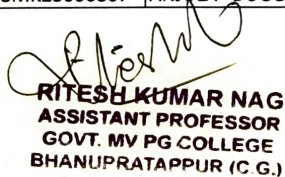 RITESH KUMAR NAG
ASSISTANT PROFESSOR
GOVT. MV PG COLLEGE
BHANUPRATAPPUR (C.G.)